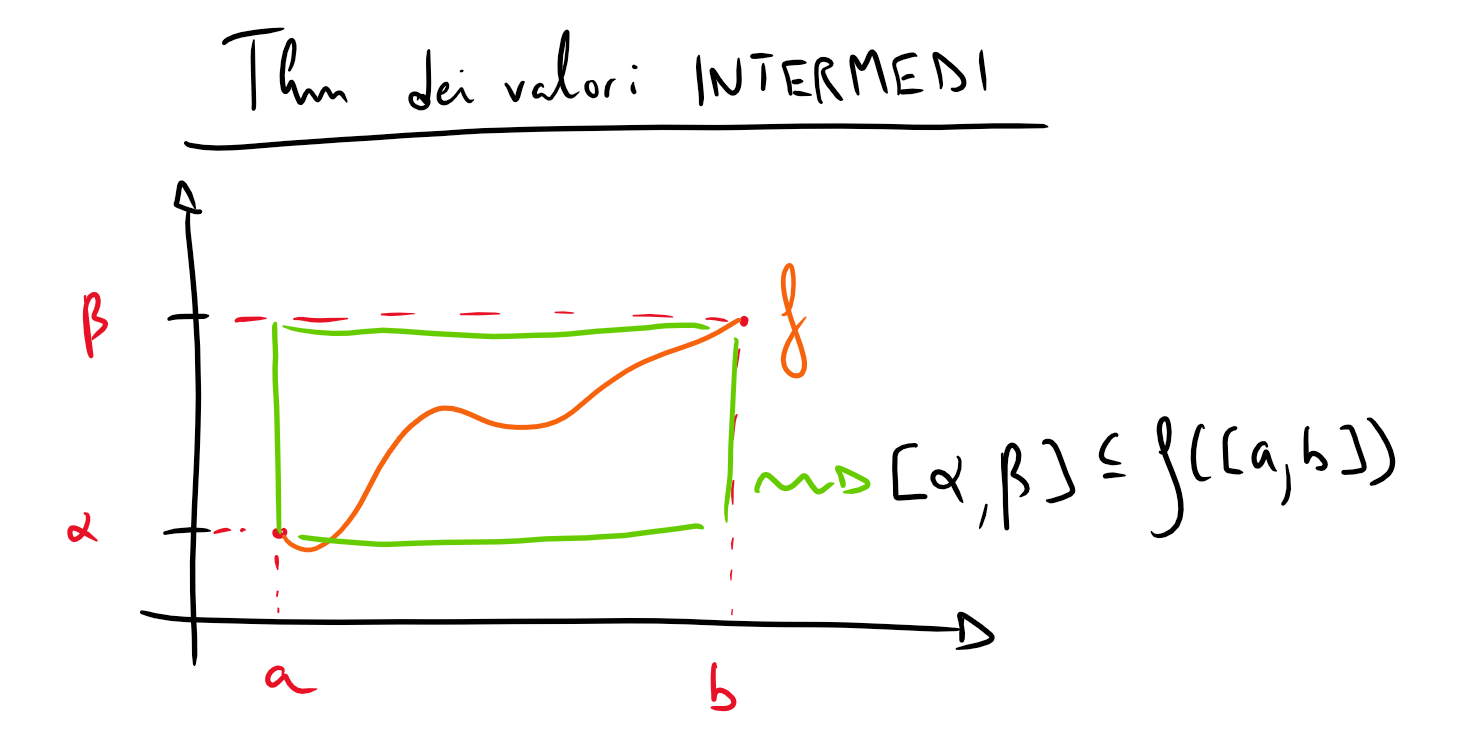 Thm dei valori INTERMEDI
β
f
[α, β] ⊆ f([a, b])
α
a
b